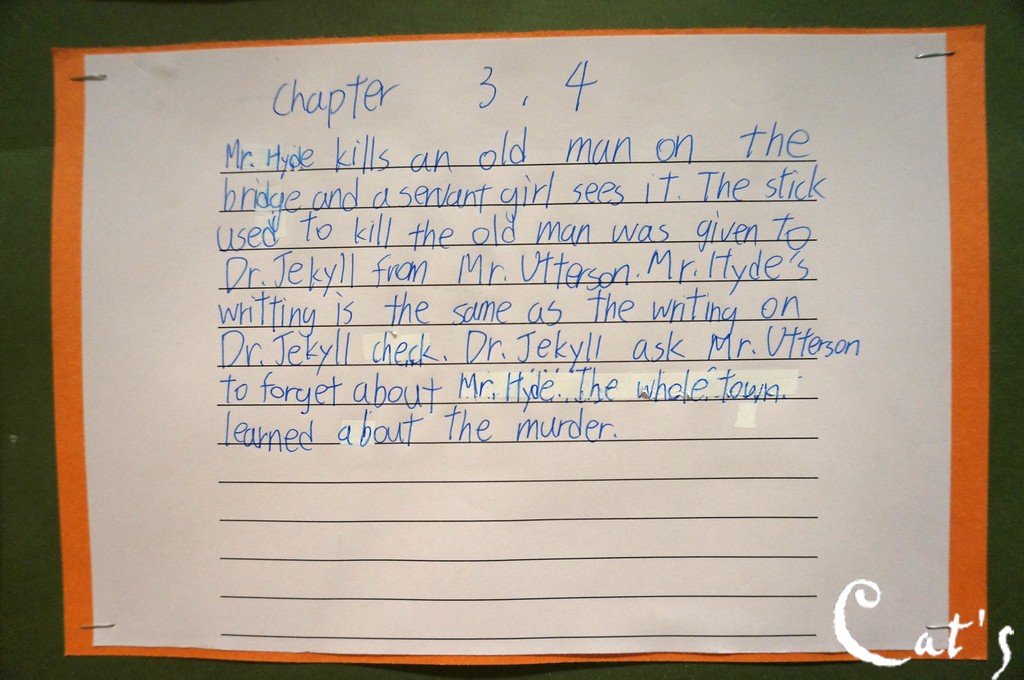 Chapter 3, 4
Mr. Hyde kills an old man on the
bridge and a servant girl sees it. The stick
used to kill the old man was given to
Dr. Jekyll from Mr. Utterson. Mr. Hyde's
writting is the same as the writing on
Dr. Jekyll check. Dr. Jekyll ask Mr. Utterson
to forget about Mr. Hyde. The whole town
learned about the murder.
Cat's